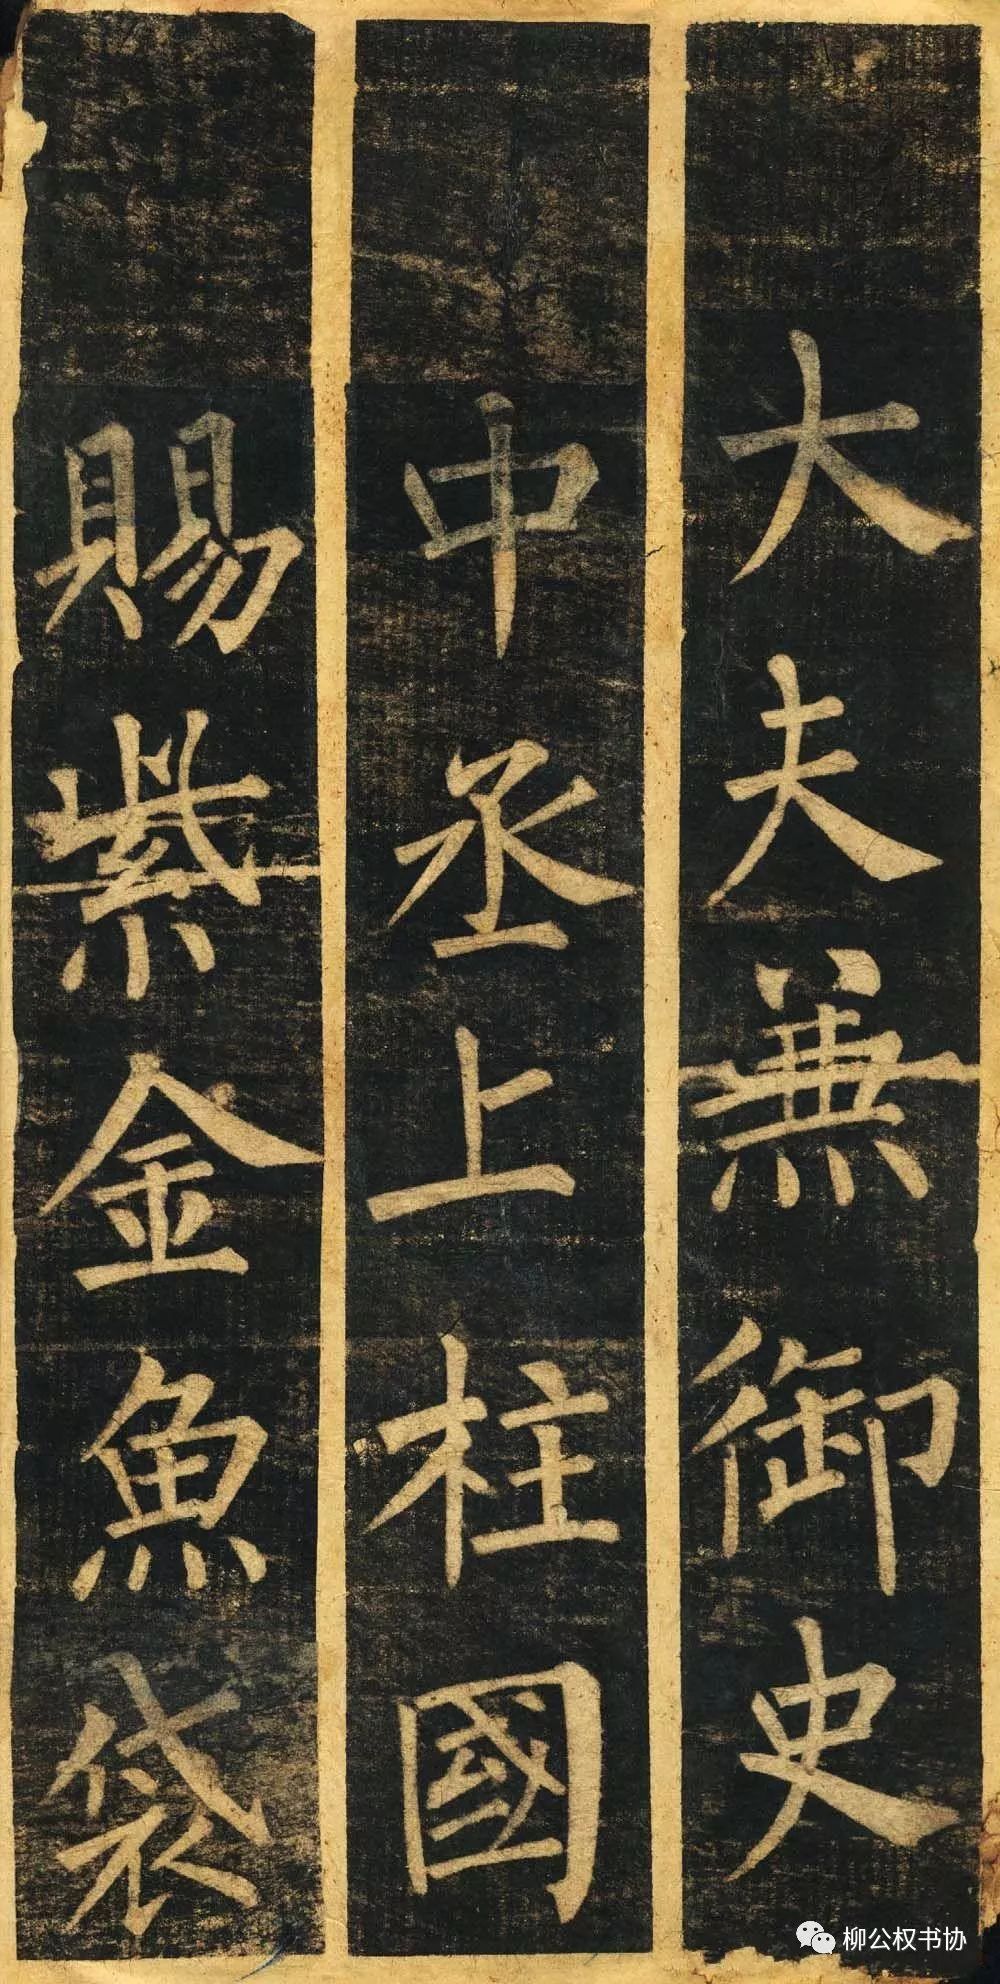 大夫兼御史
中丞上柱國
賜紫金魚袋
柳公权书协